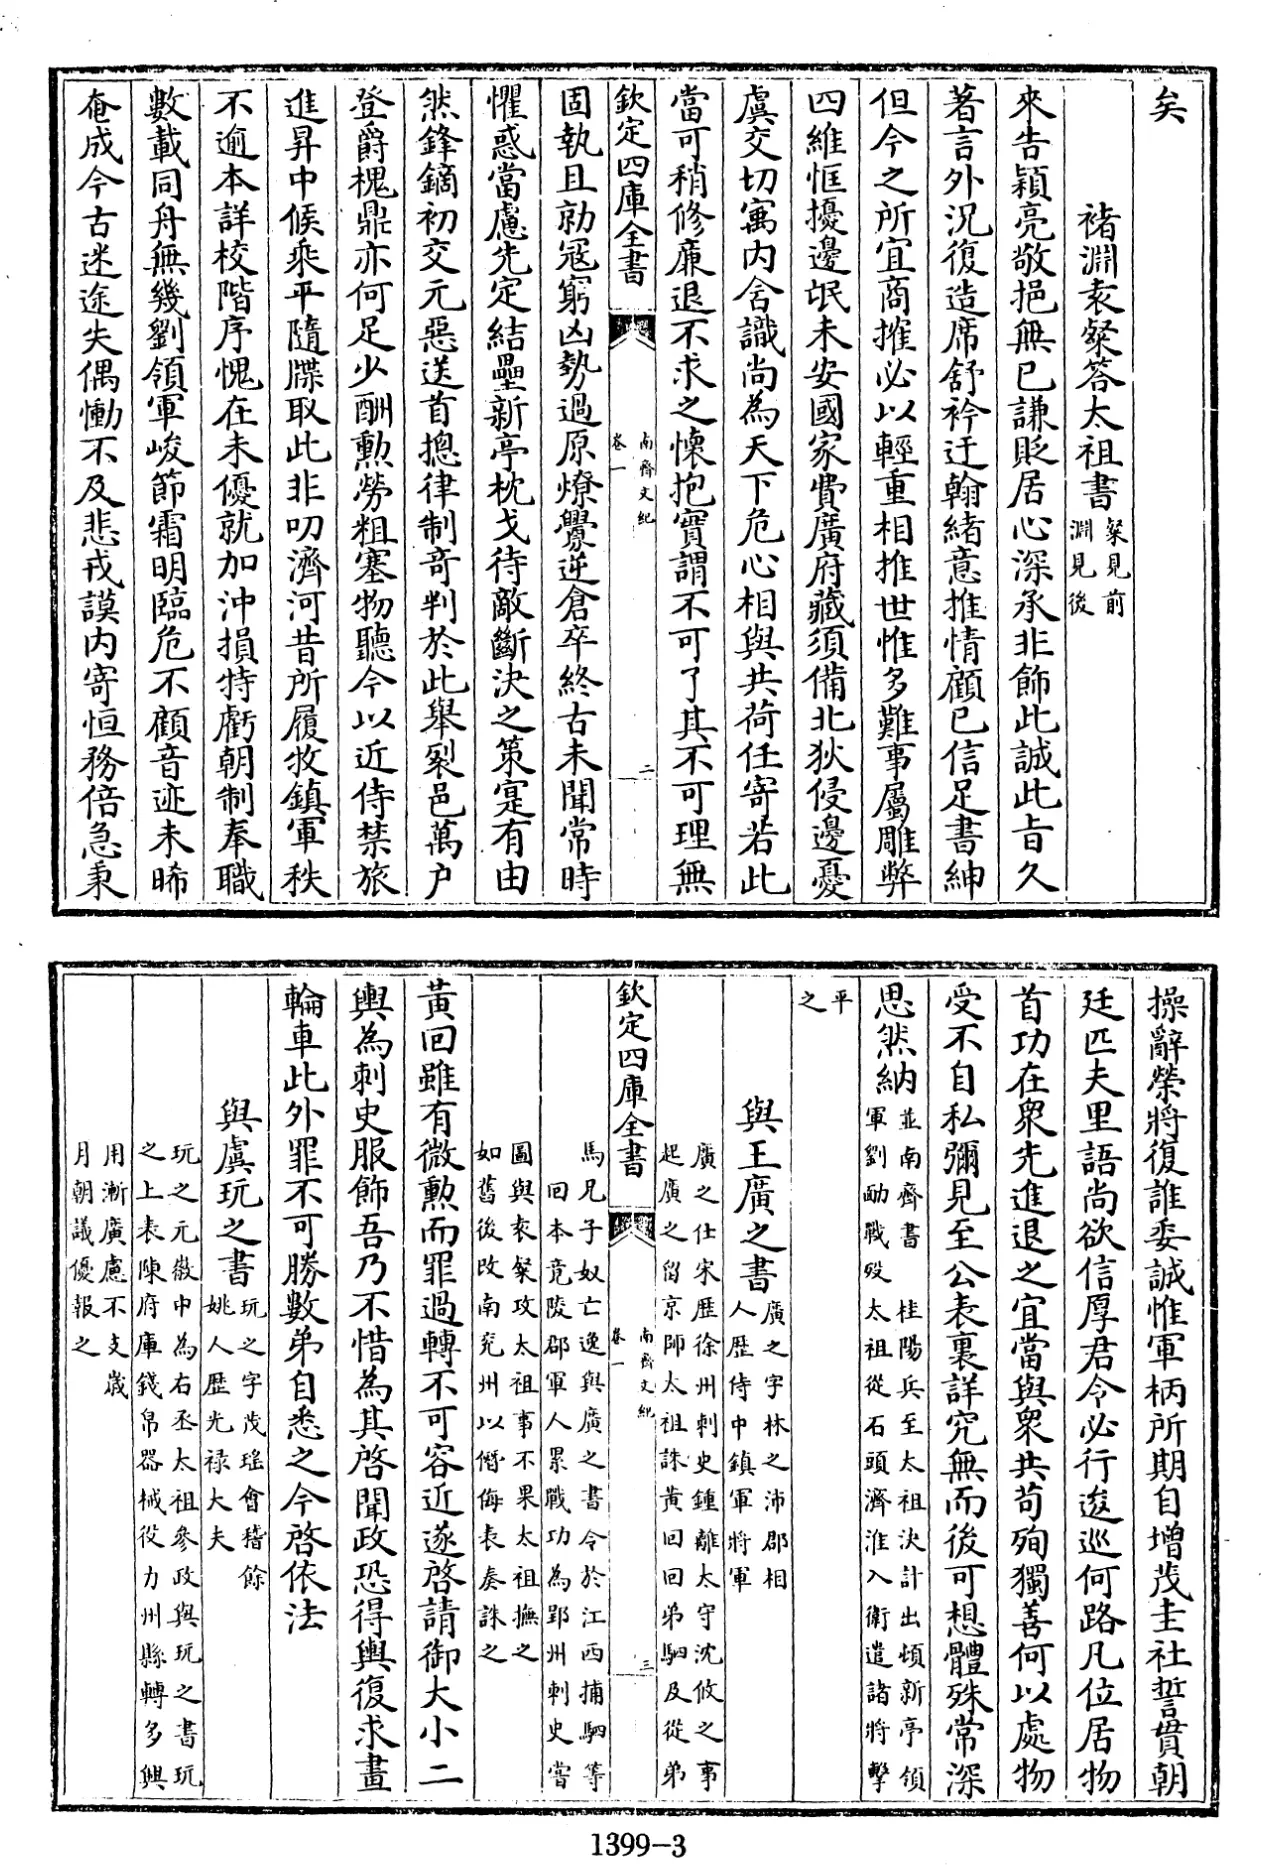 矣
褚淵袁粲答太祖書粲見前
淵見後
來告穎亮敬挹無已謙貶居心深承非飾此誠此旨久
著言外況復造席舒衿迂翰緒意推情顧已信足書紳
但今之所宜商搉必以輕重相推世惟多難事屬雕弊
四維恇擾邊氓未安國家費廣府藏須備北狄侵邊憂
虞交切寓内含識尚為天下危心相與共荷任寄若此
當可稍修廉退不求之懷抱實謂不可了其不可理無
欽定四庫全書
南齊文紀
卷一
二
固執且勍寇窮凶勢過原燎釁逆倉卒終古未聞常時
懼惑當慮先定結壘新亭枕戈待敵斷決之策寔有由
然鋒鏑初交元惡送首摠律制奇判於此舉裂邑萬户
登爵槐鼎亦何足少酬勲勞粗塞物聽今以近侍禁旅
進昇中候乘平隨牒取此非叨濟河昔所履牧鎮軍秩
不逾本詳校階序愧在未優就加沖損特虧朝制奉職
數載同舟無幾劉領軍峻節霜明臨危不顧音迹未晞
奄成今古迷途失偶慟不及悲戎謨内寄恒務倍急秉
操辭榮將復誰委誠惟軍柄所期自增茂圭社誓貫朝
廷匹夫里語尚欲信厚君令必行逡巡何路凡位居物
首功在衆先進退之宜當與衆共苟殉獨善何以處物
受不自私彌見至公表裏詳究無而後可想體殊常深
思然納並南齊書　桂陽兵至太祖決計出頓新亭領
軍劉勔戰殁太祖從石頭濟淮入衛遣諸將擊
平
之
與王廣之書廣之字林之沛郡相
人歷侍中鎮軍將軍
廣之仕宋歷徐州刺史鍾離太守沈攸之事
起廣之留京師太祖誅黄回回弟駟及從弟
欽定四庫全書
南齊文紀
卷一
三
馬兄子奴亡逸與廣之書令於江西捕駟等
回本竟陵郡軍人累戰功為郢州刺史嘗
圖與袁粲攻太祖事不果太祖撫之
如舊後改南兖州以僭侮表奏誅之
黄回雖有微勲而罪過轉不可容近遂啓請御大小二
輿為刺史服飾吾乃不惜為其啓聞政恐得輿復求畫
輪車此外罪不可勝數弟自悉之今啓依法
與虞玩之書玩之字茂瑶會稽餘
姚人歷光禄大夫
玩之元徽中為右丞太祖參政與玩之書玩
之上表陳府庫錢帛器械役力州縣轉多興
用漸廣慮不支歲
月朝議優報之
1399-3